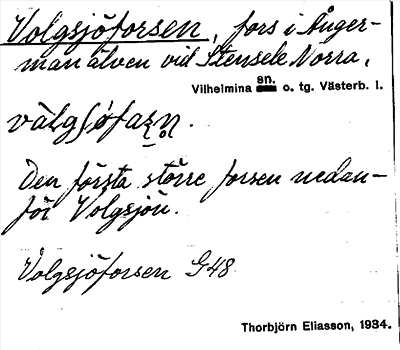 Volgsjöforsen, fors i Ånger-
manälven vid Stensele Norra,
Vilhelmina sn. o. tg. Västerb. l.
Den första större forsen nedan-
för Volgsjön.
Volgsjöforsen G48
Thorbjörn Eliasson, 1934.